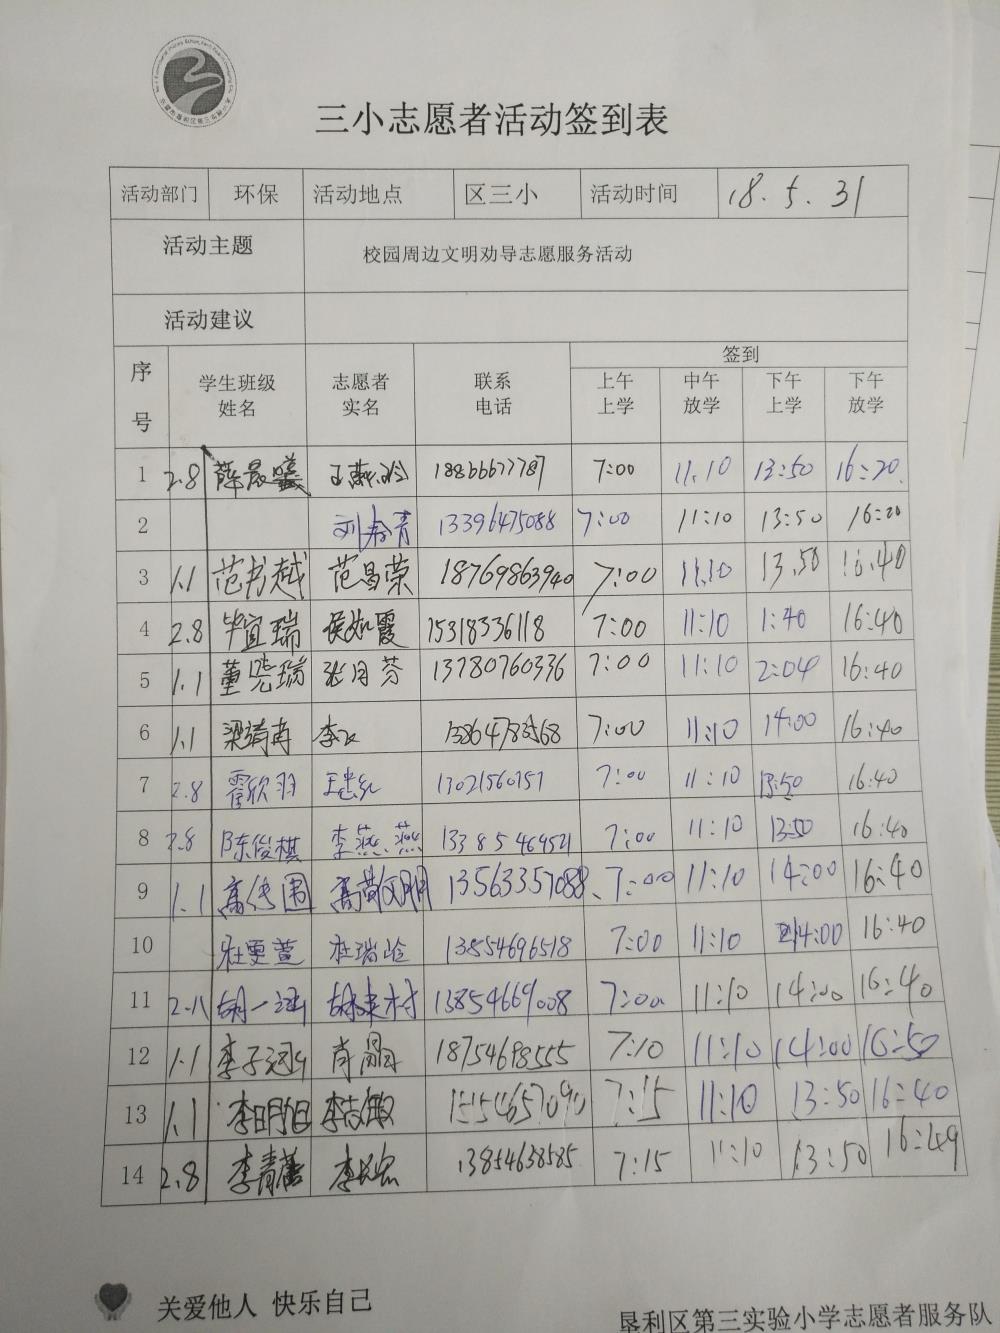 三小志愿者活动签到表
活动部门 环保 活动地点 区三小 活动时间 18.5.31
活动主题 校园周边文明劝导志愿服务活动
活动建议
序号 学生班级姓名 志愿者实名 联系电话 签到
上午上学 中午放学 下午上学 下午放学
1 2.8 薛晨曦 7:00 11.10 13:50 16:20
2 13396475088 7:00 11:10 13:50 16:20
3 1.1 范书越 范昌荣 18769863940 7:00 11:10 13.50 16.40
4 2.8 毕宜瑞 侯如霞 15318336118 7:00 11:10 1:40 16:40
5 1.1 董晓瑞 张月芬 13780760336 7:00 11:10 2:04 16:40
6 1.1 7:00 11:10 14:00 16:40
7 2.8 霍欣羽 13021560757 7:00 11:10 13:50 16:40
8 2.8 陈俊棋 李燕燕 13385464521 7:00 11:10 13:50 16:40
9 1.1 13563357088 7:00 11:10 14:00 16:40
10 13854696518 7:00 11:10 14:00 16:40
11 胡一涵 13854669008 7:00 11:10 14:00 16:40
12 1.1 18754698555 7:10 11:10 14:00 16:50
13 1.1 李明旭 李志敏 7:15 11:10 13:50 16:40
14 2.8 13854638585 7:15 11:10 13:50 16:49
关爱他人 快乐自己
垦利区第三实验小学志愿者服务队